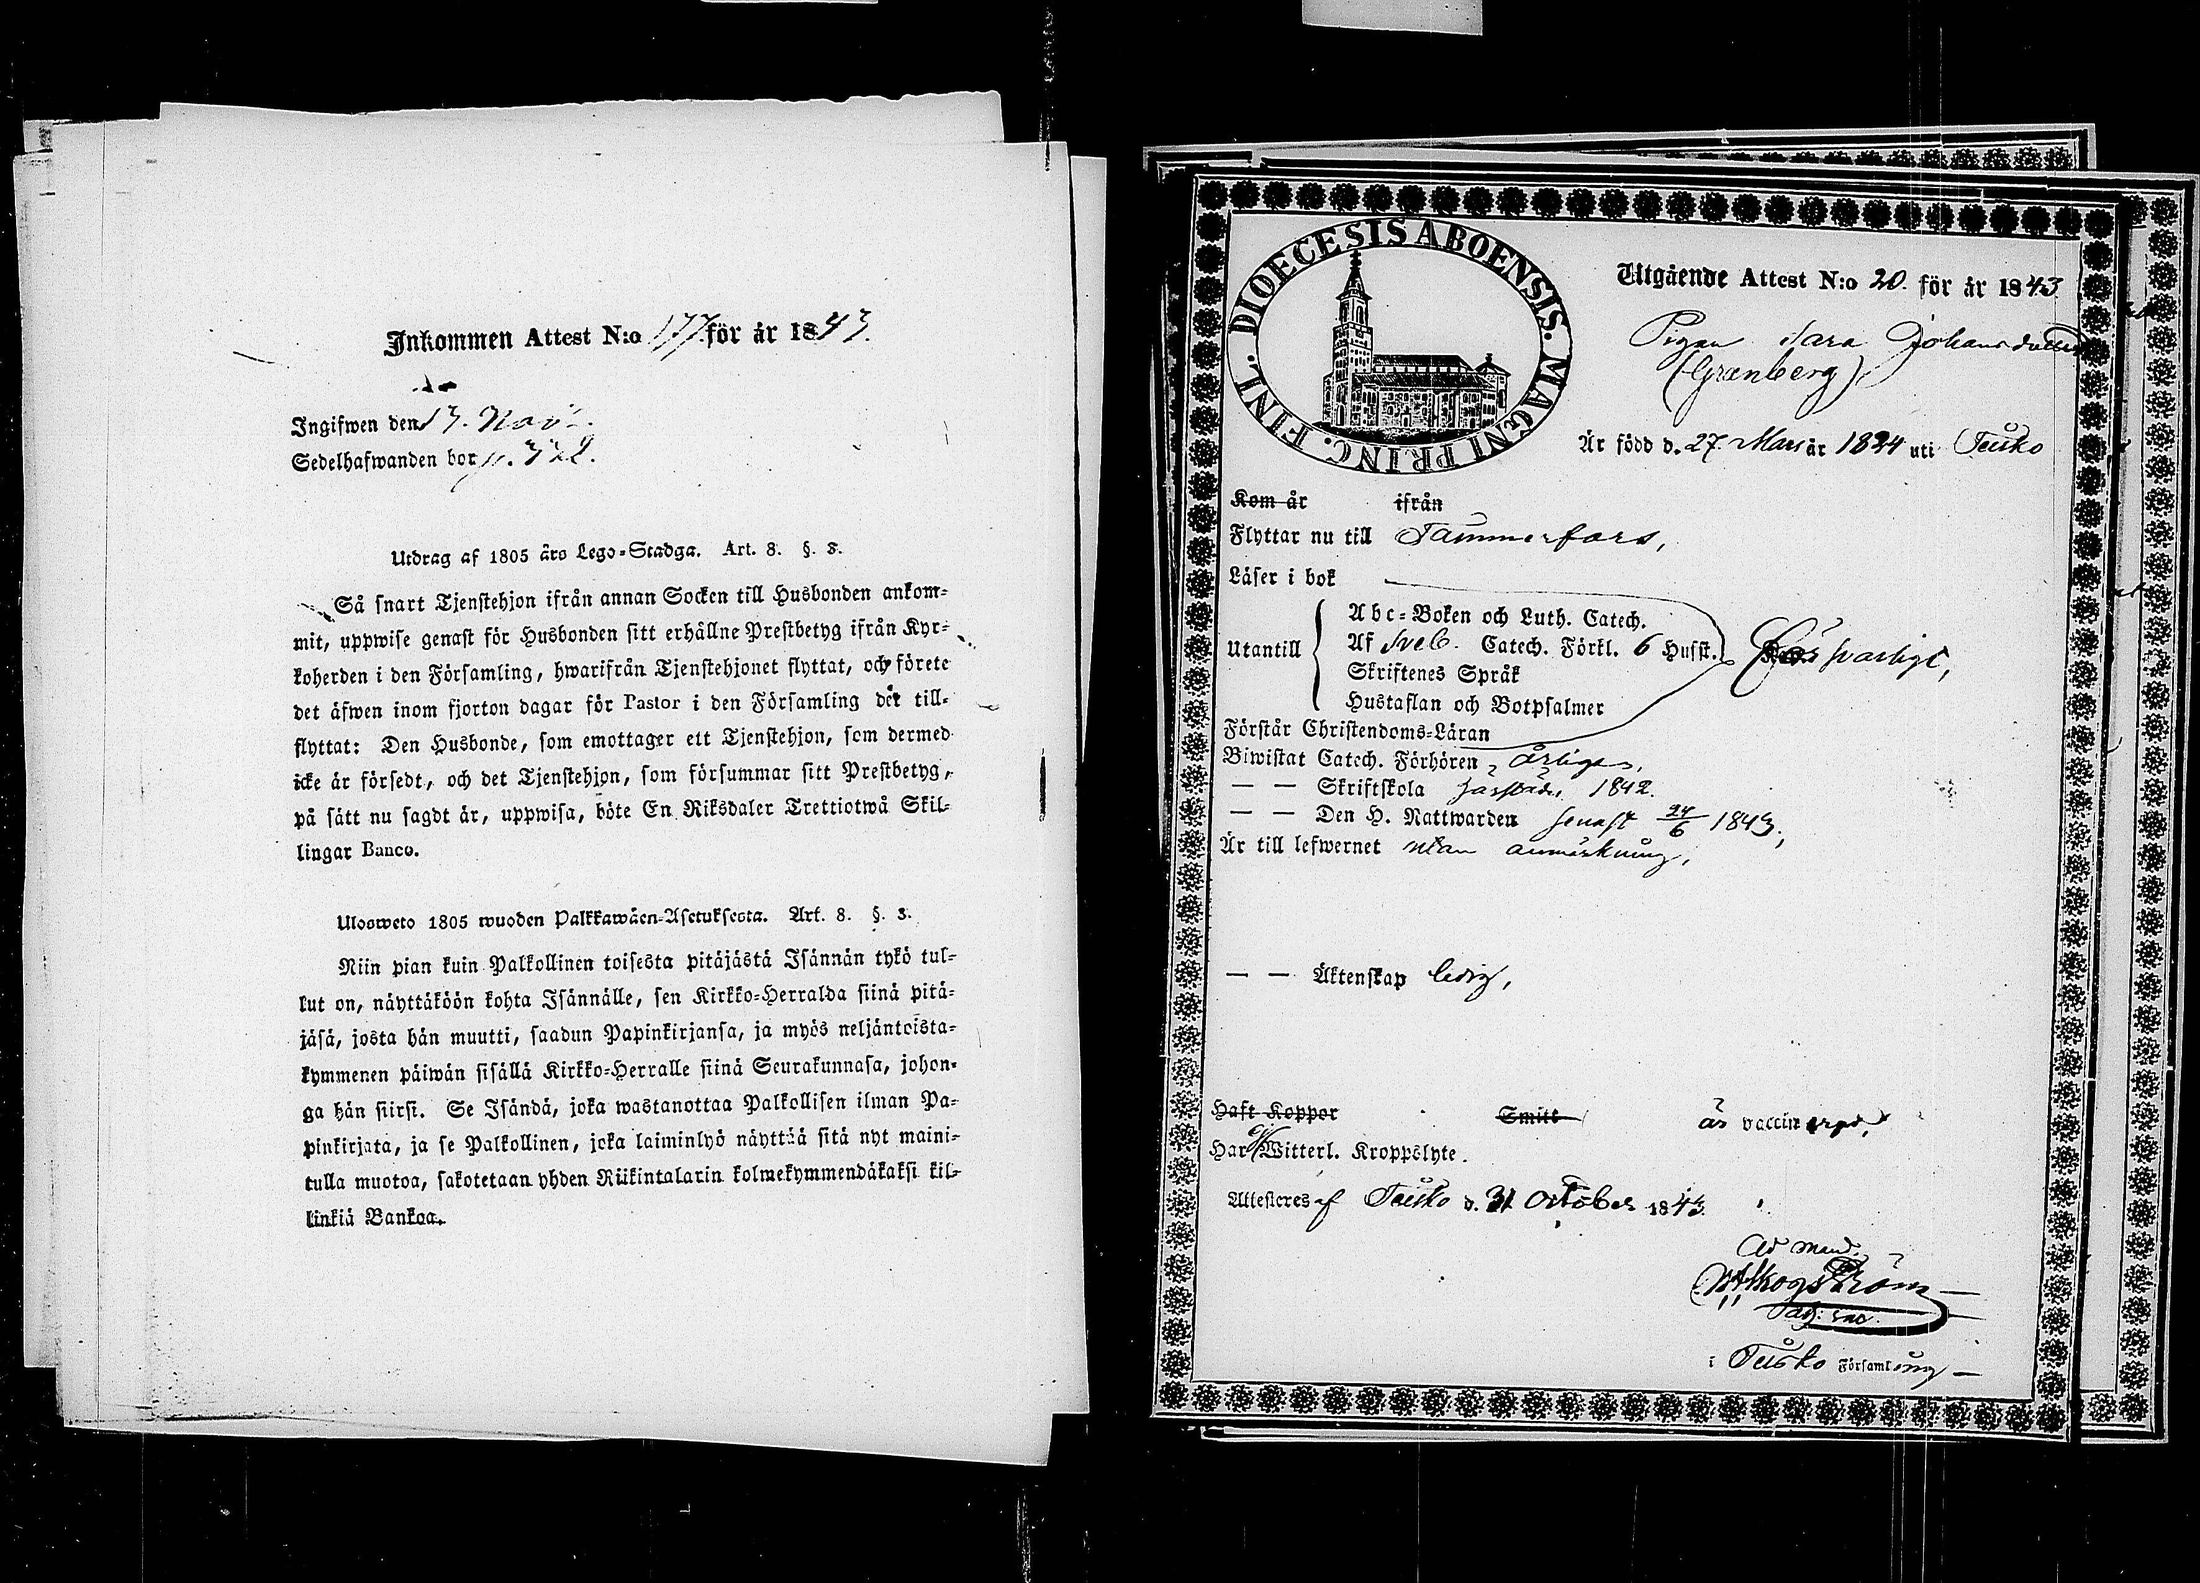 Inkommen Attest N:o 177 för år 1843.
Ingifwen den 13. Nov.
Sedelhafwanden bor p. 322.
Utdrag af 1805 års Lego-Stadga. Art. 8. §. 3.
Så snart Tjenstehjon ifrån annan Socken till Husbonden ankom-
mit, uppwise genast för Husbonden sitt erhållne Prestbetyg ifrån Kyr-
koherden i den Församling, hwarifrån Tjenstehjonet flyttat, och förete
det äfwen inom fjorton dagar för Pastor i den Församling der till-
flyttat: Den Husbonde, som emottager ett Tjenstehjon, som dermed
icke är försedt, och det Tjenstehjon, som försummar sitt Prestbetyg,
på sätt nu sagdt är, uppwisa, böte En Riksdaler Trettiotwå Skil-
lingar Banco.
Ulosweto 1805 wuoden Palkkawäen-Asetuksesta. Art. 8. §. 3.
Niin pian kuin Palkollinen toisesta pitäjästä Isännän tykö tul-
lut on, näyttäköön kohta Isännälle, sen Kirkko-Herralda siinä pitä-
jäsä, josta hän muutti, saadun Papinkirjansa, ja myös neljäntoista-
kymmenen päiwän sisällä Kirkko-Herralle siinä Seurakunnasa, johon-
ga hän siirsi. Se Isändä, joka wastanottaa Palkollisen ilman Pa-
pinkirjata, ja se Palkollinen, joka laiminlyö näyttää sitä nyt maini-
tulla muotoa, sakotetaan yhden Riikintalarin kolmekymmendäkaksi kil-
linkiä Bankoa.
DIOECESIS ABOENSIS. MAGNI PRINC. FINL.
Utgående Attest N:o 20. för år 1843
Pigan Sara Johansdotter
(Grænberg),
Är född d. 27 Mars år 1824 uti Teisko
Kom år ifrån
Flyttar nu till Tammerfors,
Läser i bok
Utantill
Abc-Boken och Luth. Catech.
Af Sveb. Catech. Förkl. 6 Husst. försvarligt,
Skriftenes Språk
Hustaflan och Botpsalmer
Förstår Christendoms-Läran
Biwistat Catech. Förhören årligen,
— — Skriftskola 1842.
— — Den H. Nattwarden senast 24/6 1843,
Är till lefwernet utan anmärkning,
— — Äktenskap ledig,
Haft Koppor Smitt är vaccinerad,
Har ej Witterl. Kroppslyte.
Attesteres af Teisko d. 31 October 1843.
Ad mand.
Skogström
i Teisko Församling